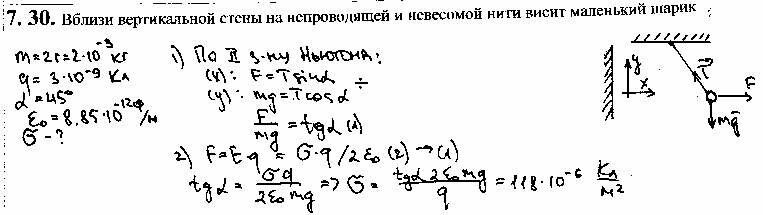 7. 30. Вблизи вертикальной стены на непроводящей и невесомой нити висит маленький шарик
m=2г=2·10⁻³ кг
q = 3·10⁻⁹ Кл
α=45°
ε₀=8,85·10⁻¹² Ф/м
σ - ?
1) По II з-ну Ньютона:
(x): F=T sinα
(y): mg=T cosα ÷
F/mg = tgα (1)
2) F=Eq = σ·q/2ε₀ (2) → (1)
tgα = σq/2ε₀mg => σ = tgα 2ε₀mg/q = 118·10⁻⁶ Кл/м²
y
x
T
F
mg